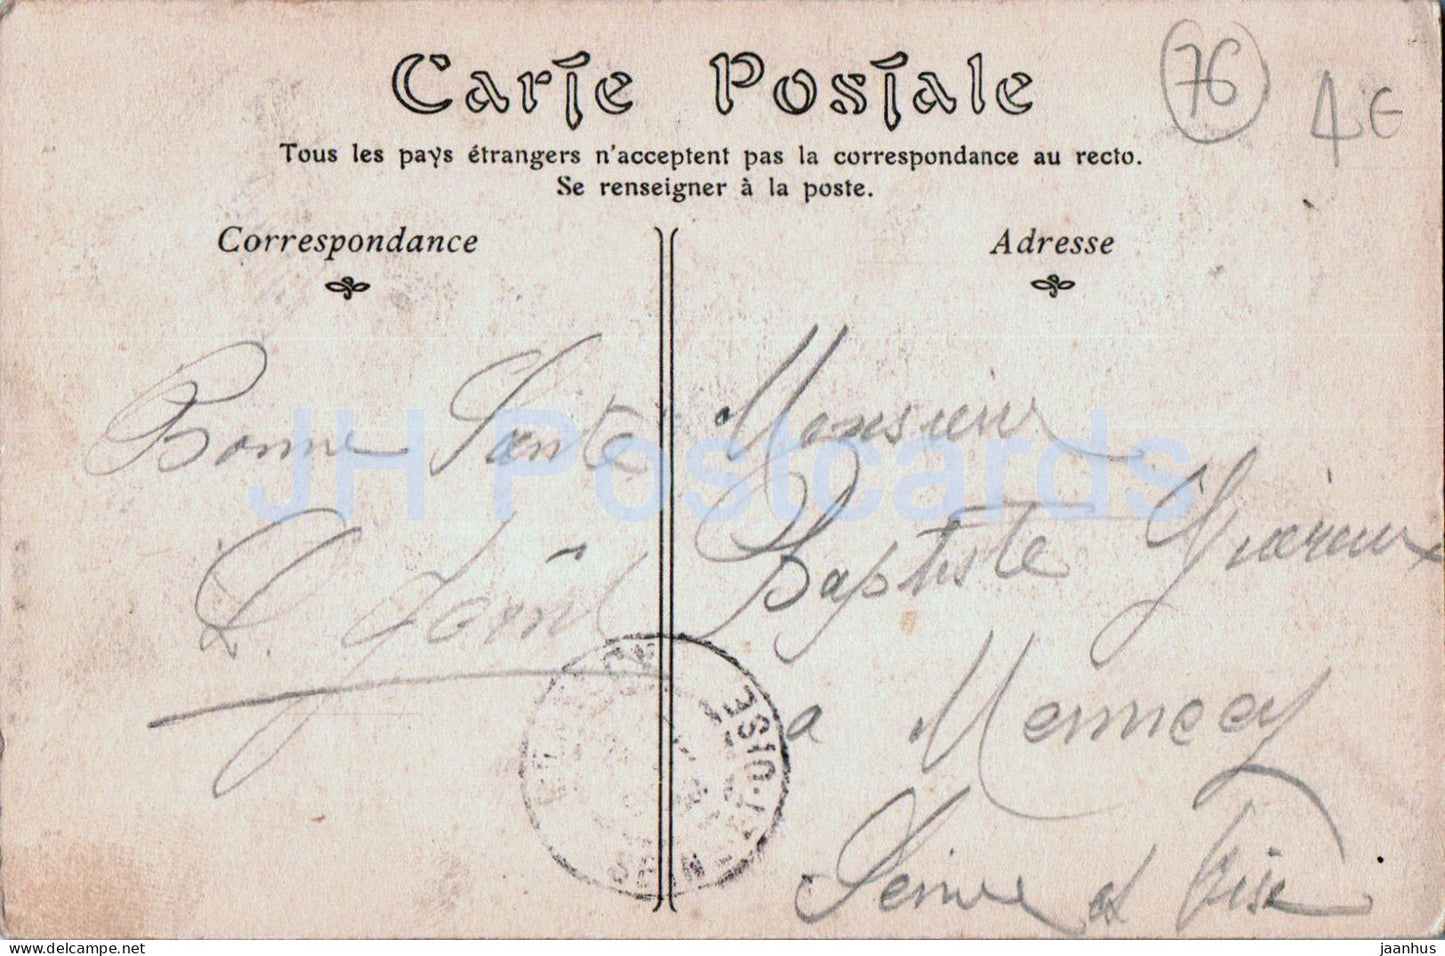 Carte Postale
76
4€
Tous les pays étrangers n'acceptent pas la correspondance au recto.
Se renseigner à la poste.
Correspondance
Adresse
Bonne Sante
Monsieur
Baptiste
a Mennecy
Seine et Oise
SEINE-ET-OISE
JH Postcards
jaanhus